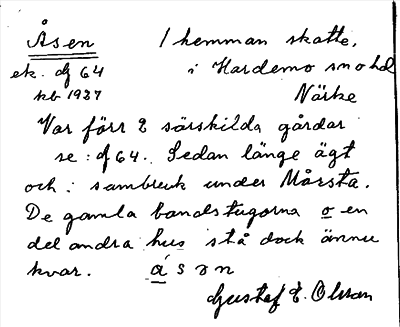 Åsen 1 hemman skatte,
ek. df 64 i Hardemo sn o hd
kb 1937 Närke
Var förr 2 särskilda gårdar
se: df 64. Sedan länge ägt
och i sambruk under Mårsta.
De gamla bandstugorna o en
del andra hus stå dock ännu
kvar. åsɘn
Gustaf E. Olsson